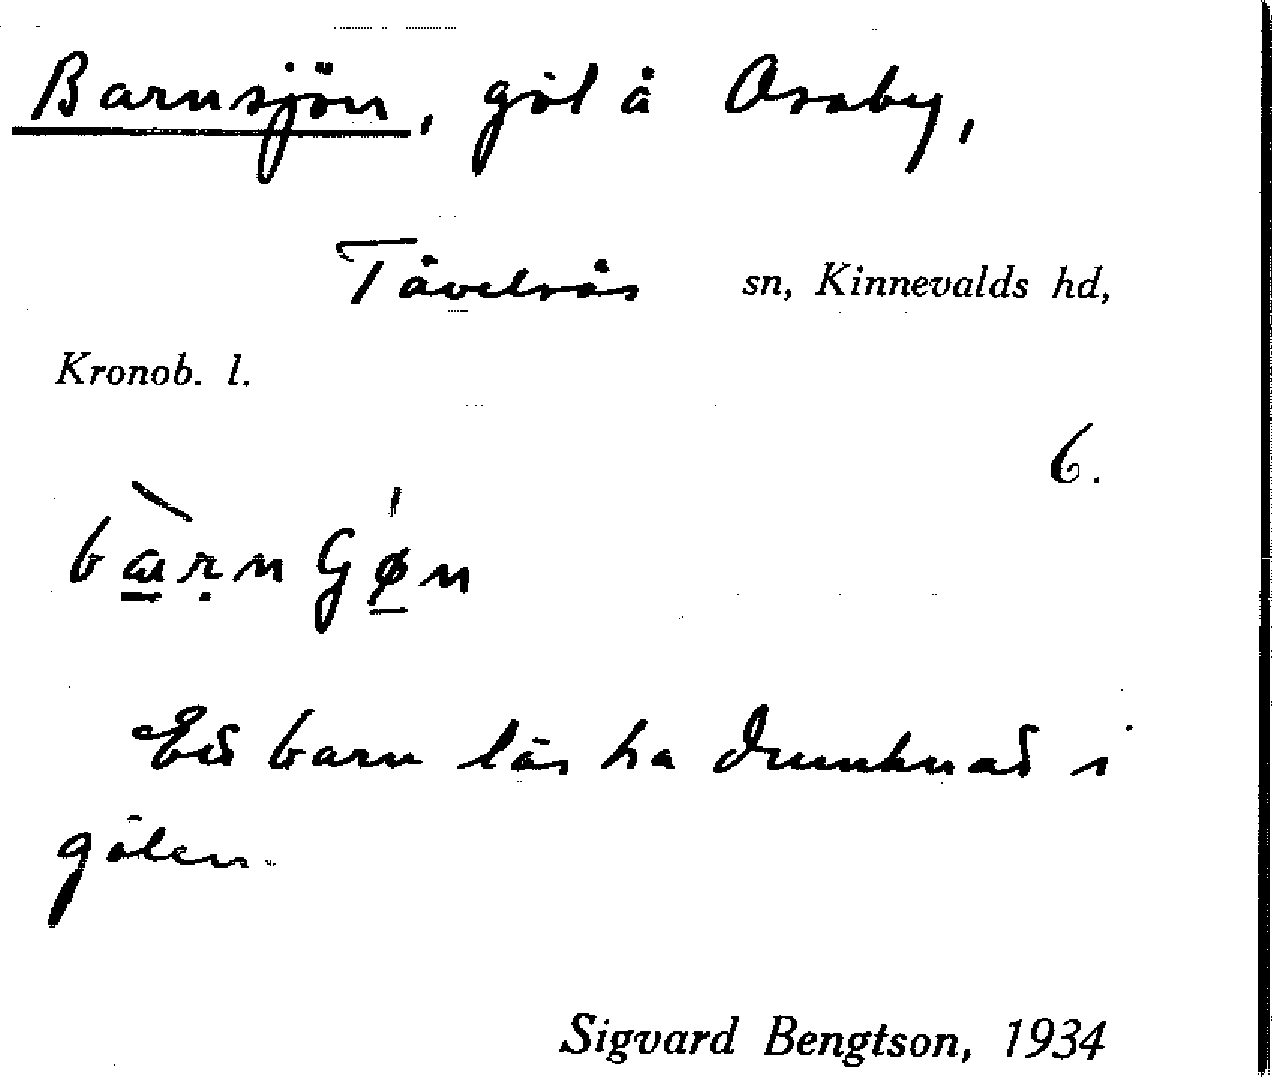 Barnsjön, göl å Osaby,
Tävelsås sn, Kinnevalds hd,
Kronob. l.
6.
bàrnGǿn
Ett barn lär ha drunknat i
gölen.
Sigvard Bengtson, 1934